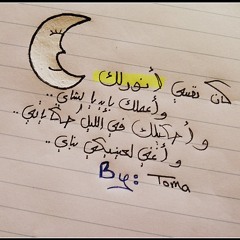 كان نفسي أنورلك
وأعملك بإيديا الشاي ..
وأحكيلك في الليل حكايتي ..
وأغني لعينيكي بناي ..
By: Toma